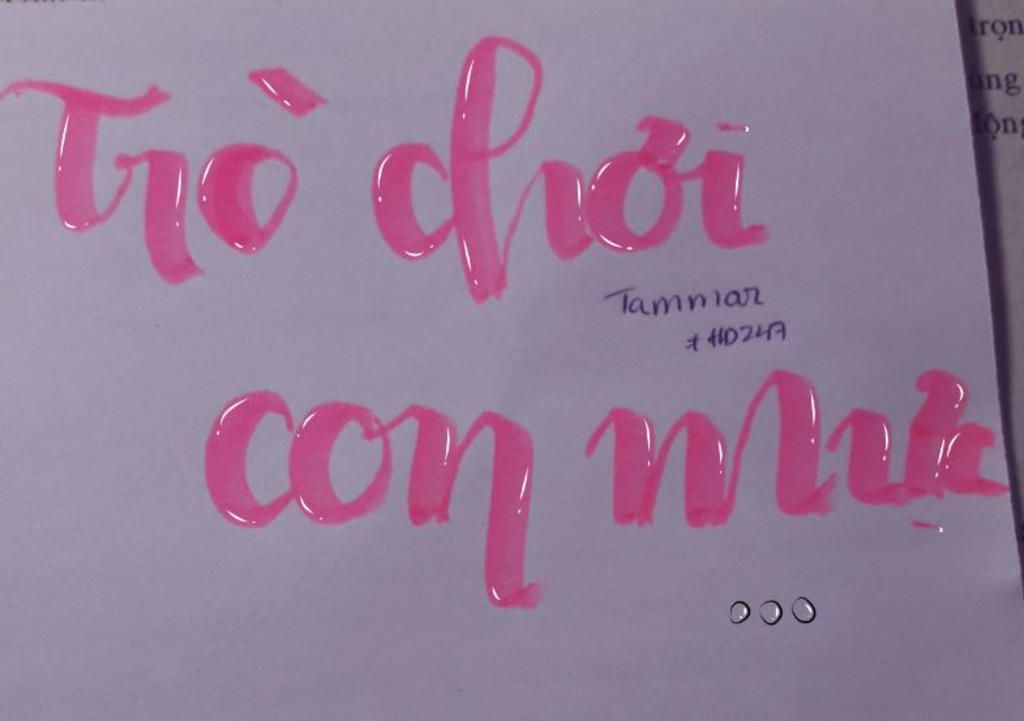 Trò chơi
Tammar
#HD247
con mực
...
trọn
ùng
động